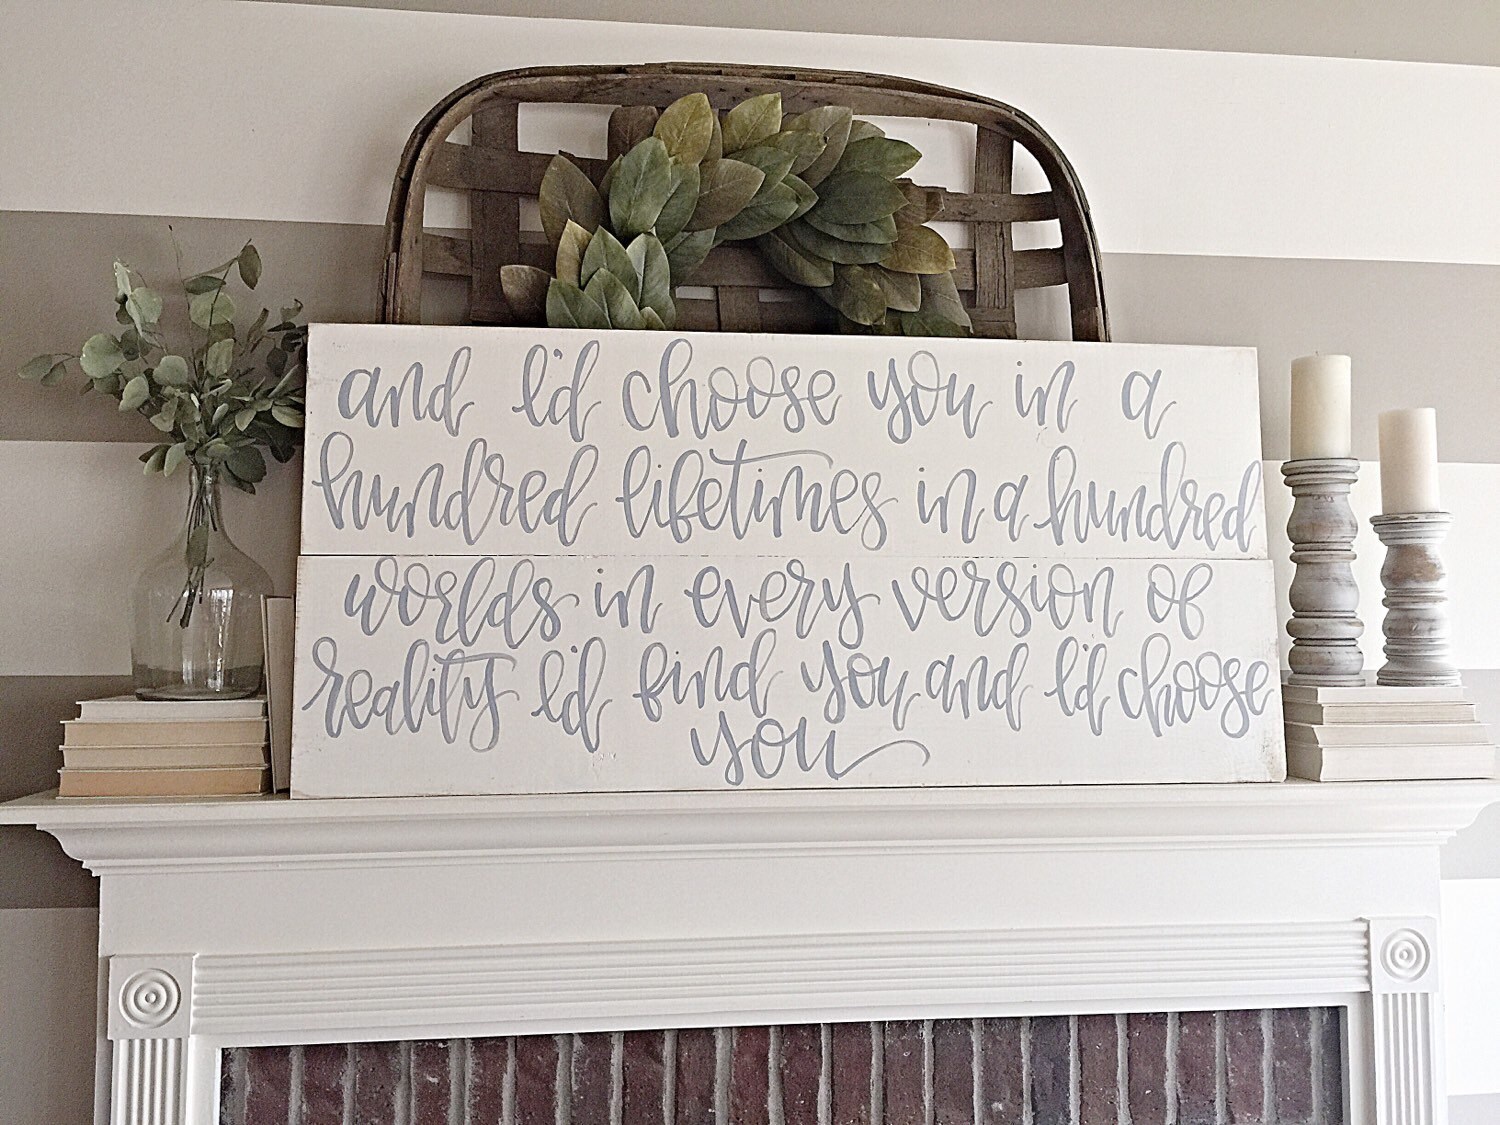 and I'd choose you in a
hundred lifetimes in a hundred
worlds in every version of
reality I'd find you and I'd choose
you